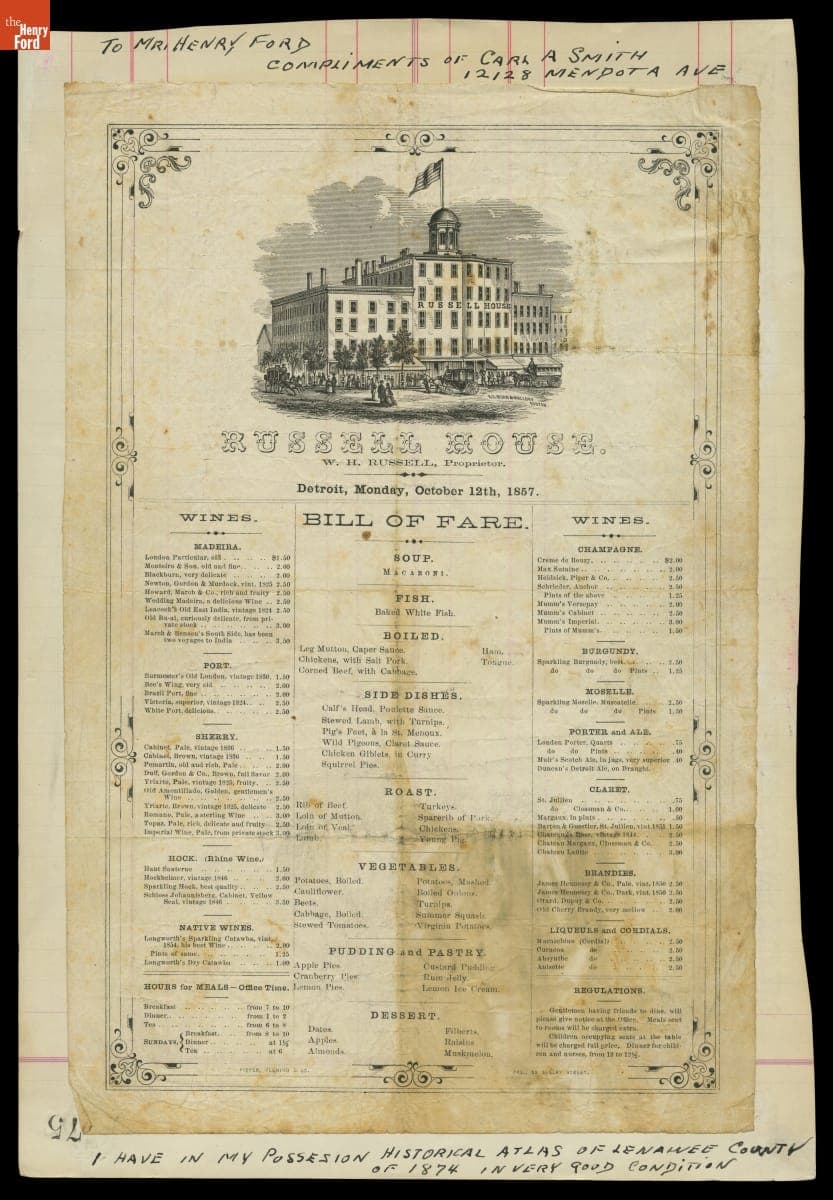 the
Henry
Ford
TO MR. HENRY FORD
COMPLIMENTS OF CARL A SMITH
12128 MENDOTA AVE
RUSSELL HOUSE
RUSSELL HOUSE.
W. H. RUSSELL, Proprietor.
Detroit, Monday, October 12th, 1857.
WINES.
MADEIRA.
London Particular, old . . . . . $1.50
Monteiro & Son, old and fine . . . 2.00
Blackburn, very delicate . . . . 2.00
Newton, Gordon & Murdock, vint. 1825 2.50
Howard, March & Co., rich and fruity 2.50
Wedding Madeira, a delicious Wine . . 2.50
Leacock's Old East India, vintage 1824 2.50
Old Bu-al, curiously delicate, from pri-
vate stock . . . . . 3.00
March & Benson's South Side, has been
two voyages to India . . . . 3.50
PORT.
Burmester's Old London, vintage 1830. 1.50
Bee's Wing, very old . . . . 2.00
Brazil Port, fine . . . . 2.00
Victoria, superior, vintage 1824 . . 2.50
White Port, delicious . . . . 2.50
SHERRY.
Cabinet, Pale, vintage 1836 . . . 1.50
Cabinet, Brown, vintage 1836 . . . 1.50
Pemartin, old and rich, Pale . . . 2.00
Duff, Gordon & Co., Brown, full flavor 2.00
Yriarte, Pale, vintage 1825, fruity . . 2.50
Old Amontillado, Golden, gentlemen's
Wine . . . . . 2.50
Yriarte, Brown, vintage 1825, delicate 2.50
Romano, Pale, a sterling Wine . . 3.00
Topaz, Pale, rich, delicate and fruity . . 2.50
Imperial Wine, Pale, from private stock 3.00
HOCK. (Rhine Wine.)
Haut Sauterne . . . . . 1.50
Hockheimer, vintage 1846 . . . 2.00
Sparkling Hock, best quality . . . 2.50
Schloss Johannisberg, Cabinet, Yellow
Seal, vintage 1846 . . . . 3.50
NATIVE WINES.
Longworth's Sparkling Catawba, vint.
1854, his best Wine . . . . 2.00
Pints of same . . . . . 1.25
Longworth's Dry Catawba . . . 1.00
HOURS for MEALS—Office Time.
Breakfast . . . . . from 7 to 10
Dinner . . . . . from 1 to 2
Tea . . . . . from 6 to 8
SUNDAYS, Breakfast . . . from 8 to 10
Dinner . . . at 1½
Tea . . . at 6
BILL OF FARE.
SOUP.
MACARONI.
FISH.
Baked White Fish.
BOILED.
Leg Mutton, Caper Sauce. Ham.
Chickens, with Salt Pork. Tongue.
Corned Beef, with Cabbage.
SIDE DISHES.
Calf's Head, Poulette Sauce.
Stewed Lamb, with Turnips.
Pig's Feet, à la St. Menoux.
Wild Pigeons, Claret Sauce.
Chicken Giblets, in Curry
Squirrel Pies.
ROAST.
Rib of Beef. Turkeys.
Loin of Mutton. Sparerib of Pork.
Loin of Veal. Chickens.
Lamb. Young Pig.
VEGETABLES.
Potatoes, Boiled. Potatoes, Mashed.
Cauliflower. Boiled Onions.
Beets. Turnips.
Cabbage, Boiled. Summer Squash.
Stewed Tomatoes. Virginia Potatoes.
PUDDING and PASTRY.
Apple Pies. Custard Pudding.
Cranberry Pies. Rum Jelly.
Lemon Pies. Lemon Ice Cream.
DESSERT.
Dates. Filberts.
Apples. Raisins
Almonds. Muskmelon.
WINES.
CHAMPAGNE.
Creme de Bouzy . . . . . $2.00
Max Sutaine . . . . . 2.00
Heidsick, Piper & Co. . . . . 2.50
Schrieder, Anchor . . . . 2.50
Pints of the above . . . . 1.25
Mumm's Verzenay . . . . 2.00
Mumm's Cabinet . . . . 2.50
Mumm's Imperial . . . . 3.00
Pints of Mumm's . . . . 1.50
BURGUNDY.
Sparkling Burgundy, best . . . 2.50
do do do Pints . . 1.25
MOSELLE.
Sparkling Moselle, Muscatelle . . . 2.50
do do do Pints 1.50
PORTER and ALE.
London Porter, Quarts . . . . .75
do do Pints . . . . .40
Muir's Scotch Ale, in jugs, very superior .40
Duncan's Detroit Ale, on Draught.
CLARET.
St. Jullien . . . . . .75
do Clossman & Co. . . . . 1.00
Margaux, in pints . . . . .50
Barton & Guestier, St. Jullien, vint. 1851 1.50
vintage 1844 . . . 2.50
Chateau Margaux, Clossman & Co. . . 2.50
Chateau Lafitte . . . . . 3.00
BRANDIES.
James Hennessy & Co., Pale, vint. 1850 2.50
James Hennessy & Co., Dark, vint. 1850 2.50
Otard, Dupuy & Co. . . . . 2.50
Old Cherry Brandy, very mellow . . 2.00
LIQUEURS and CORDIALS.
Maraschino (Cordial) . . . . 2.50
Curacoa do . . . . 2.50
Absynthe do . . . . 2.50
Anisette do . . . . 2.50
REGULATIONS.
Gentlemen having friends to dine, will
please give notice at the Office. Meals sent
to rooms will be charged extra.
Children occupying seats at the table
will be charged full price. Dinner for chil-
dren and nurses, from 12 to 12½.
75
I HAVE IN MY POSSESION HISTORICAL ATLAS OF LENAWEE COUNTY
OF 1874 IN VERY GOOD CONDITION